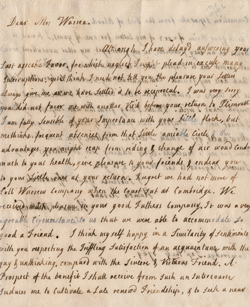 Dear Mrs Warren
Altho I have delayd answering your
last agreable favor, for which neglect I might plead in excuse many
Interruptions, yet I think I need not tell you the pleasure your Letters
always give me, we have settled it to be reciprocal. I was very sorry
you did not favor me with another Visit before your return to Plimouth
I am fully sensible of your Importance with your little flock, but
methinks frequent absences from that little amiable Circle
advantages you might reap from riding & change of air would conduce
much to your health, give pleasure to your friends & endear you
to your little ones at your return. I regret we had not more of
Coll Warrens company when the Court sat at Cambridge. We
received much pleasure in your good Fathers company, it was a very
agreable Circumstance to us that we were able to accommodate so
good a Friend. I think myself happy in a Similarity of sentiments
with you respecting the trifling Satisfaction of an acquaintance with the
gay & unthinking, compared with the Sincere & Virtuous Friend. A
Prospect of the benefit I shall receive from such an Intercourse
Induces me to cultivate a late renewed Friendship, & to such a name